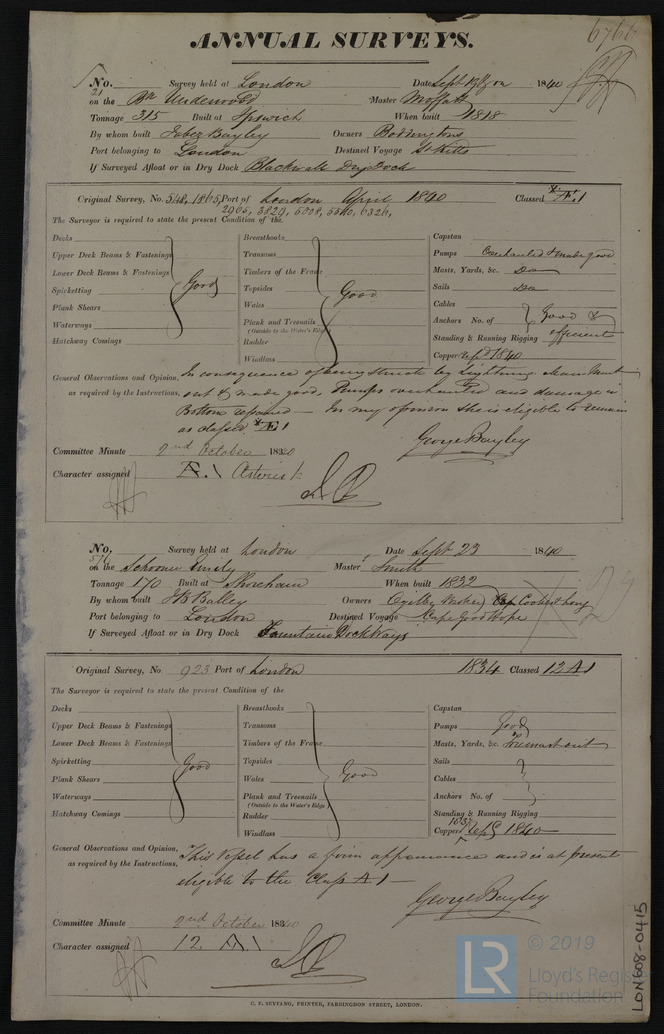 ANNUAL SURVEYS.
No. 21 Survey held at London Date Sept 1840
on the Bk Underwood Master Moffatt
Tonnage 315 Built at Ipswich When built 1818
By whom built Jabez Bayley Owners Boddingtons
Port belonging to London Destined Voyage St Kitts
If Surveyed Afloat or in Dry Dock Blackwall Dry Dock
Original Survey, No. 548, 1865, Port of London April 1840 Classed *Æ.1
2905, 3829, 5008, 5540, 6326,
The Surveyor is required to state the present Condition of the
Decks Breasthooks Capstan
Upper Deck Beams & Fastenings Transoms Pumps Overhauled & made good
Lower Deck Beams & Fastenings Timbers of the Frame Masts, Yards, &c. Do
Spirketting Good Topsides Good Sails Do
Plank Shears Wales Cables
Waterways Plank and Treenails (Outside to the Water's Edge) Anchors No. of Good & efficient
Hatchway Comings Rudder Standing & Running Rigging
Windlass Coppered 1840
General Observations and Opinion, In consequence of being struck by lightning Main Mast
as required by the Instructions, out & made good, Pumps overhauled and damage in
Bottom repaired — In my opinion she is eligible to remain
as classed *Æ1 George Bayley
Committee Minute 2nd October 1840
Character assigned Æ.1 Asterisk
No. 516 Survey held at London Date Sept 23 1840
on the Schooner Emily Master Smith
Tonnage 170 Built at Shoreham When built 1832
By whom built JB Balley Owners
Port belonging to London Destined Voyage Cape Good Hope
If Surveyed Afloat or in Dry Dock Fountain Dock Ways
Original Survey, No. 923 Port of London 1834 Classed 12 A1
The Surveyor is required to state the present Condition of the
Decks Breasthooks Capstan
Upper Deck Beams & Fastenings Transoms Pumps Good
Lower Deck Beams & Fastenings Timbers of the Frame Masts, Yards, &c. Foremast out
Spirketting Good Topsides Good Sails
Plank Shears Wales Cables
Waterways Plank and Treenails (Outside to the Water's Edge) Anchors No. of
Hatchway Comings Rudder Standing & Running Rigging
Windlass Coppered 1837 Repd 1840
General Observations and Opinion, This Vessel has a firm appearance and is at present
as required by the Instructions, eligible to the Class A1
George Bayley
Committee Minute 2nd October 1840
Character assigned 12 A1
C. F. SEYFANG, PRINTER, FARRINGDON STREET, LONDON.
LR © 2019
Lloyd's Register
Foundation
LON608-0415